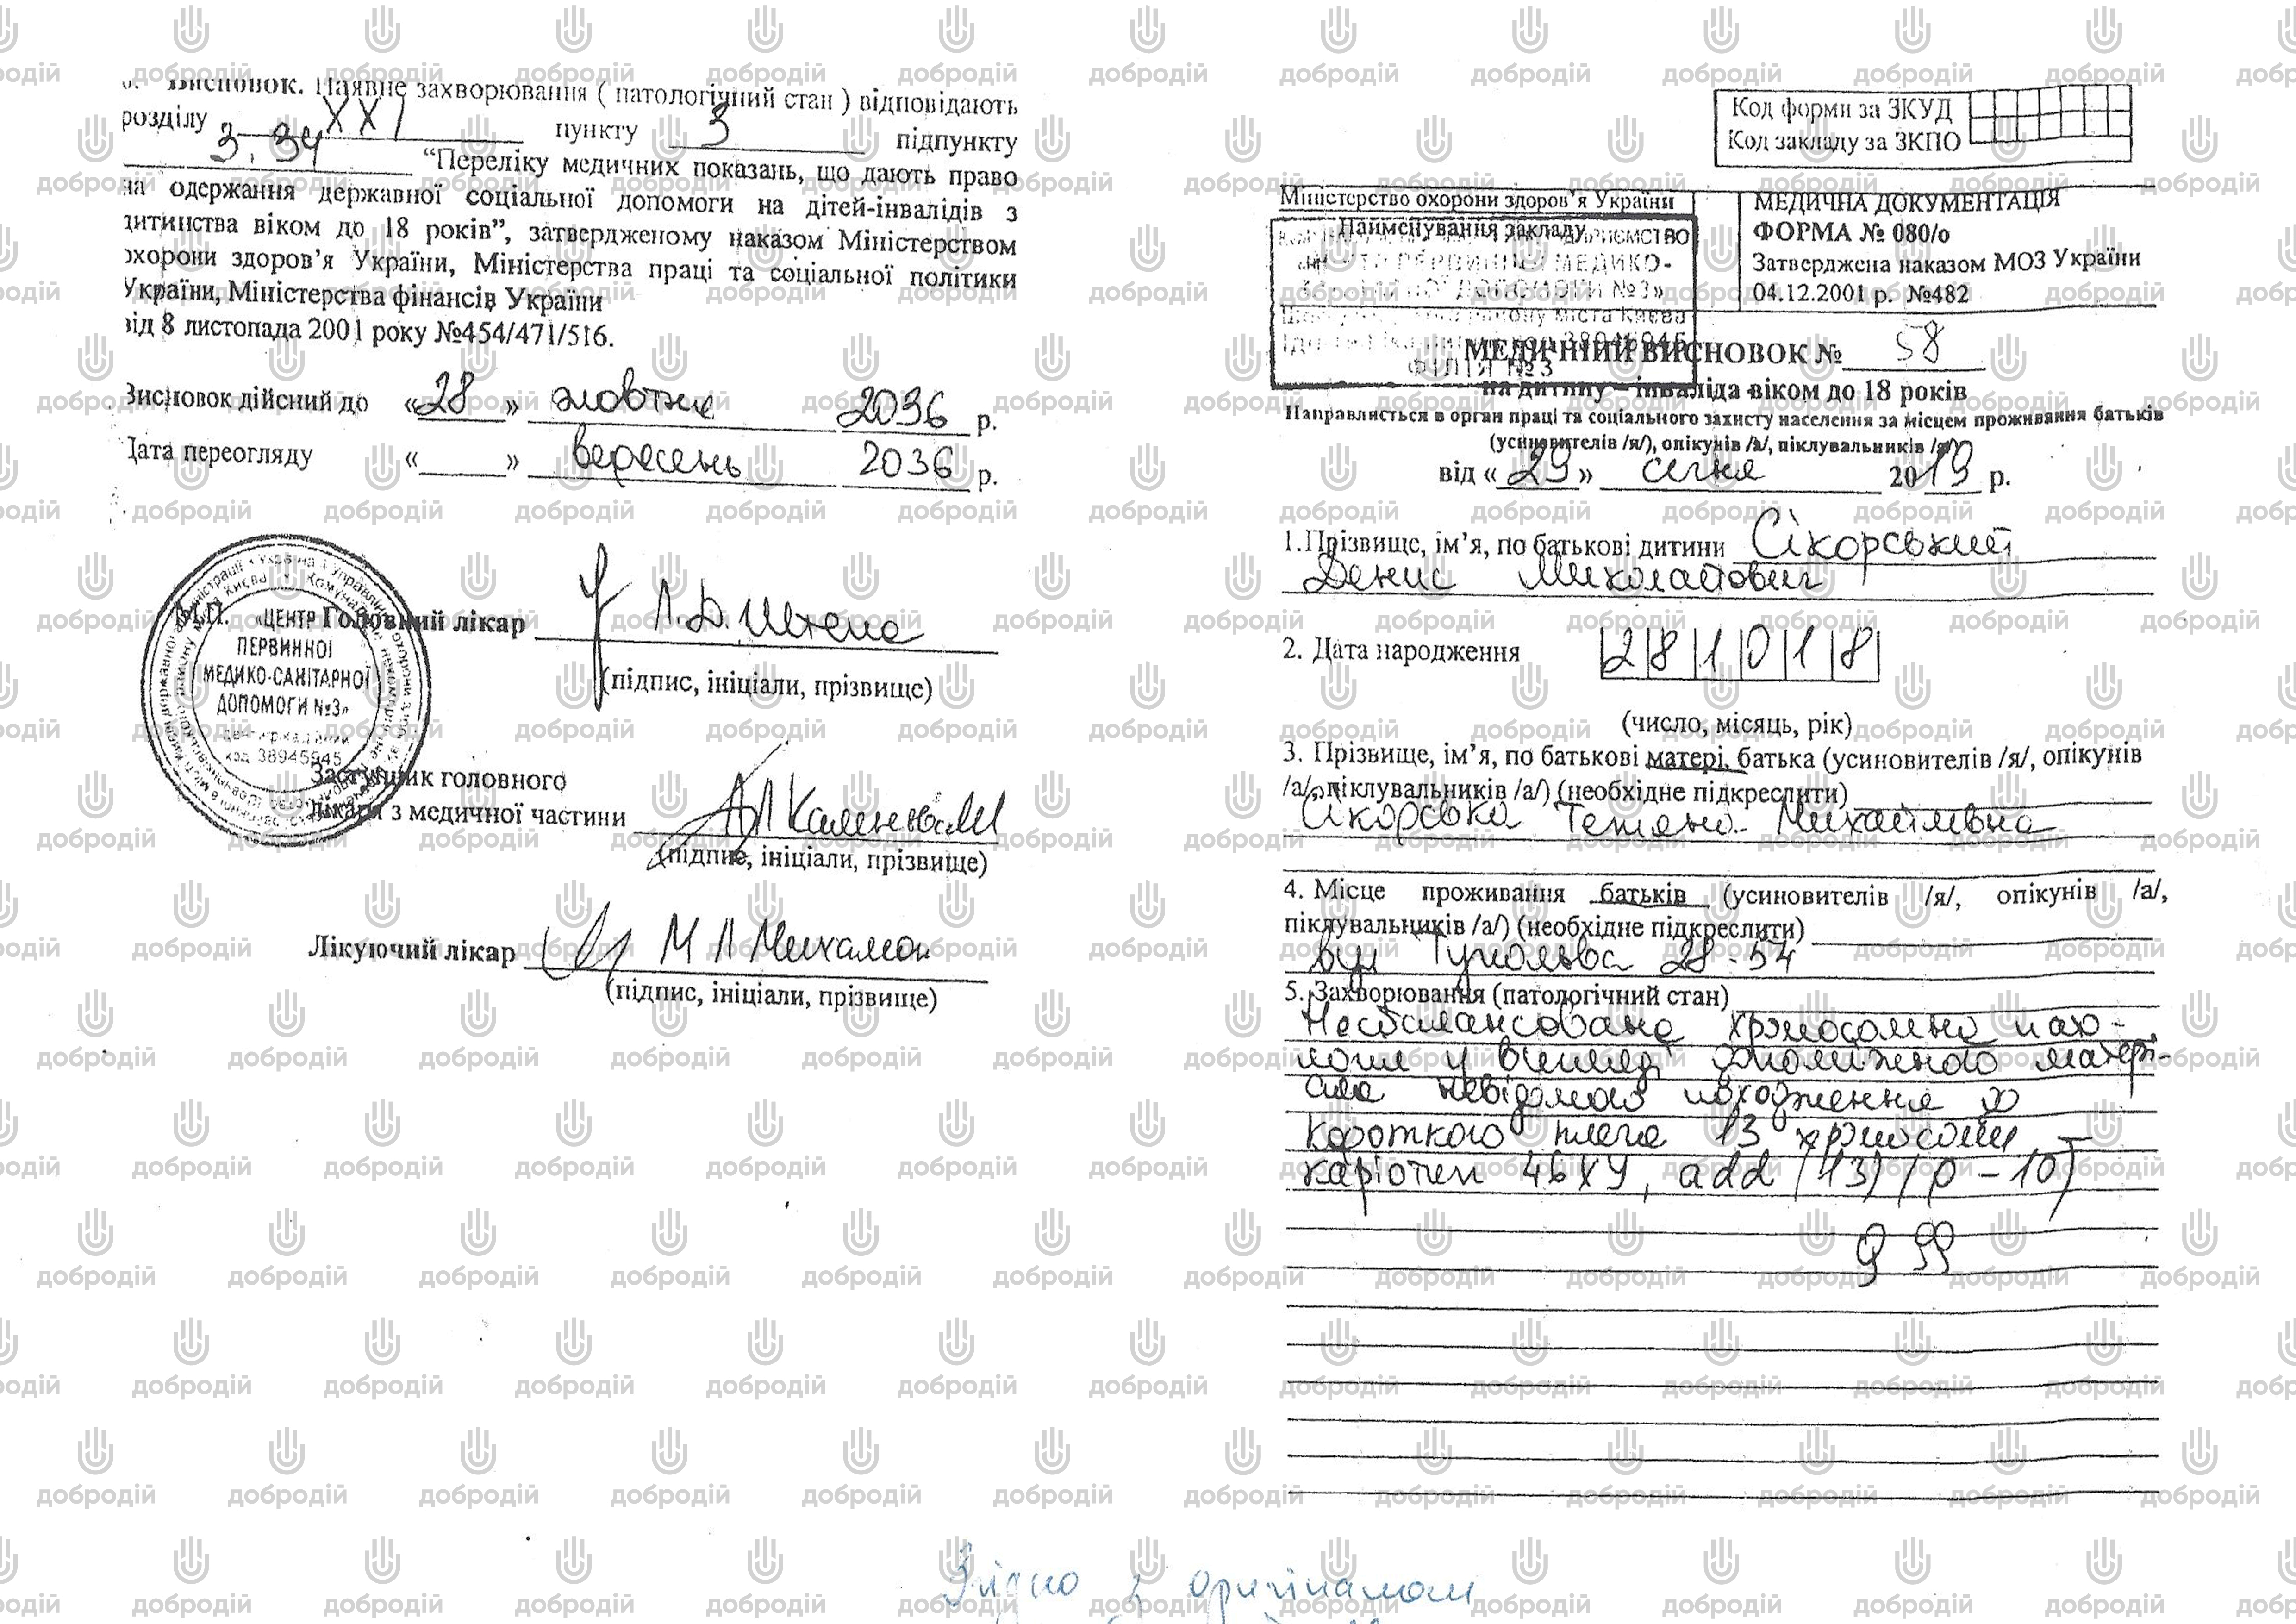 6. Висновок. Наявне захворювання ( патологічний стан ) відповідають
розділу XXI пункту 3 підпункту
3.34 “Переліку медичних показань, що дають право
на одержання державної соціальної допомоги на дітей-інвалідів з
дитинства віком до 18 років”, затвердженому наказом Міністерством
охорони здоров’я України, Міністерства праці та соціальної політики
України, Міністерства фінансів України
від 8 листопада 2001 року №454/471/516.
Висновок дійсний до «28» жовтня 2036 р.
Дата переогляду « » вересень 2036 р.
М.П. Головний лікар
(підпис, ініціали, прізвище)
«ЦЕНТР
ПЕРВИННОЇ
МЕДИКО-САНІТАРНОЇ
ДОПОМОГИ №3»
код 38945945
Заступник головного
лікаря з медичної частини
(підпис, ініціали, прізвище)
Лікуючий лікар
(підпис, ініціали, прізвище)
Код форми за ЗКУД
Код закладу за ЗКПО
Міністерство охорони здоров’я України
Найменування закладу
МЕДИЧНА ДОКУМЕНТАЦІЯ
ФОРМА № 080/о
Затверджена наказом МОЗ України
04.12.2001 р. №482
ФІЛІЯ №3
МЕДИЧНИЙ ВИСНОВОК № 58
на дитину – інваліда віком до 18 років
Направляється в орган праці та соціального захисту населення за місцем проживання батьків
(усиновителів /я/), опікунів /а/, піклувальників /я/)
від «29» січня 2019 р.
1.Прізвище, ім’я, по батькові дитини Сікорський
Денис Миколайович
2. Дата народження 281018
(число, місяць, рік)
3. Прізвище, ім’я, по батькові матері, батька (усиновителів /я/, опікунів
/а/, піклувальників /а/) (необхідне підкреслити)
Сікорська Тетяна Михайлівна
4. Місце проживання батьків (усиновителів /я/, опікунів /а/,
піклувальників /а/) (необхідне підкреслити)
вул Туполєва 28-54
5. Захворювання (патологічний стан)
Незбалансована хромосомна пато-
логія у вигляді додаткового матері-
ала невідомого походження
короткого плеча 13 хромосоми
каріотип 46XY, add (13) (p-10)
Q 99
Згідно з оригіналом
добродій